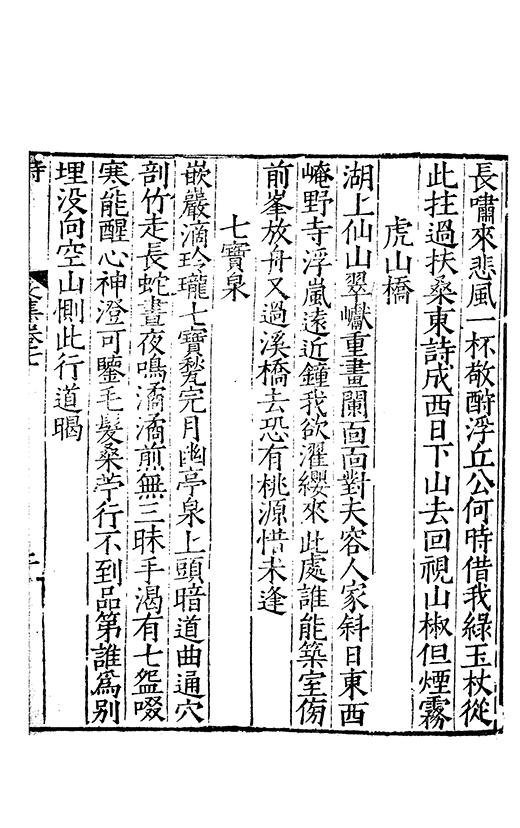 長嘯來悲風一杯敬酹浮丘公何時借我綠玉杖從
此拄過扶桑東詩成西日下山去回視山椒但煙霧
虎山橋
湖上仙山翠巘重畫闌面面對天容人家斜日東西
崦野寺浮嵐遠近鐘我欲濯纓來此處誰能築室傍
前峯放舟又過溪橋去恐有桃源惜未逢
七寶泉
嵌巖滴玲瓏七寶甃完月幽亭泉上頭暗道曲通穴
剖竹走長蛇晝夜鳴潏潏煎無三昧手渴有七盌啜
寒能醒心神澄可鑒毛髮桑苧行不到品第誰爲別
埋没向空山惻此行道暍
詩 文集卷七